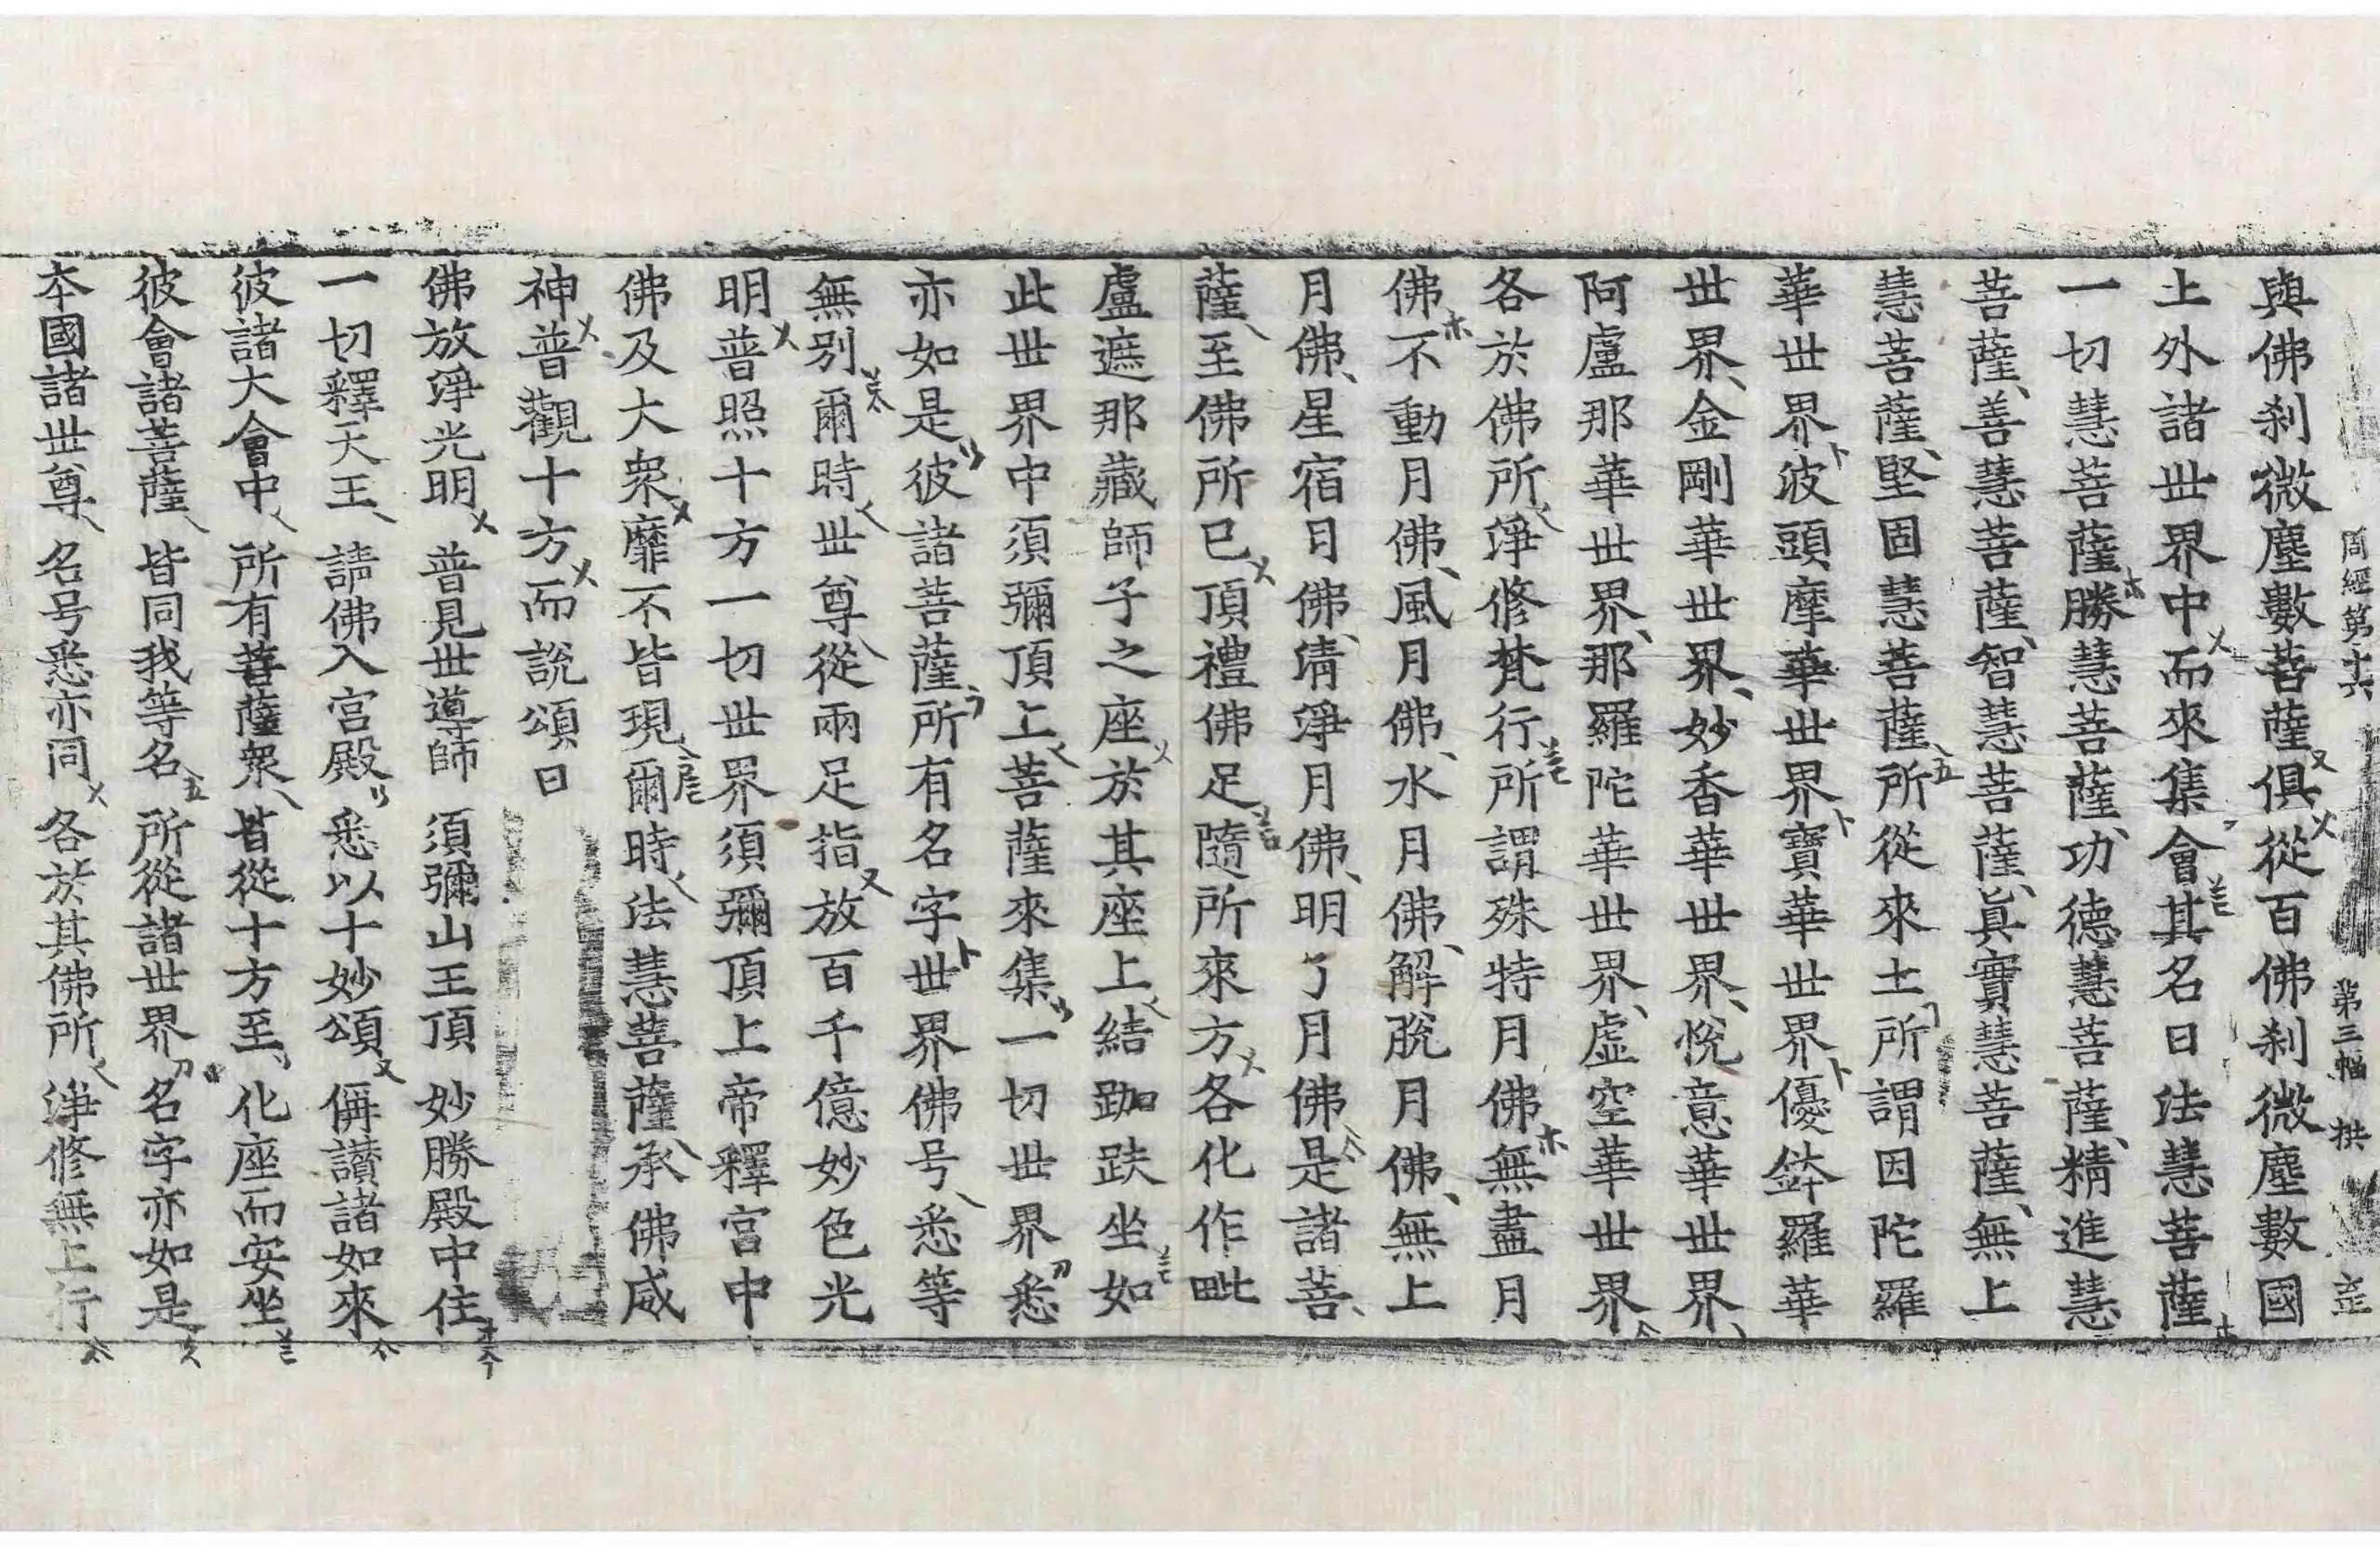 周經第十六 第三幅 拱
與佛刹微塵數菩薩俱從百佛刹微塵數國
土外諸世界中而來集會其名曰法慧菩薩
一切慧菩薩勝慧菩薩功德慧菩薩精進慧
菩薩善慧菩薩智慧菩薩眞實慧菩薩無上
慧菩薩堅固慧菩薩所從來土所謂因陀羅
華世界波頭摩華世界寶華世界優鉢羅華
世界金剛華世界妙香華世界悅意華世界
阿盧那華世界那羅陀華世界虛空華世界
各於佛所淨修梵行所謂殊特月佛無盡月
佛不動月佛風月佛水月佛解脫月佛無上
月佛星宿月佛清淨月佛明了月佛是諸菩
薩至佛所已頂禮佛足隨所來方各化作毗
盧遮那藏師子之座於其座上結跏趺坐如
此世界中須彌頂上菩薩來集一切世界悉
亦如是彼諸菩薩所有名字世界佛号悉等
無別爾時世尊從兩足指放百千億妙色光
明普照十方一切世界須彌頂上帝釋宮中
佛及大衆靡不皆現爾時法慧菩薩承佛威
神普觀十方而說頌曰
佛放淨光明 普見世導師 須彌山王頂 妙勝殿中住
一切釋天王 請佛入宮殿 悉以十妙頌 偁讃諸如來
彼諸大會中 所有菩薩衆 皆從十方至 化座而安坐
彼會諸菩薩 皆同我等名 所從諸世界 名字亦如是
本國諸世尊 名号悉亦同 各於其佛所 淨修無上行